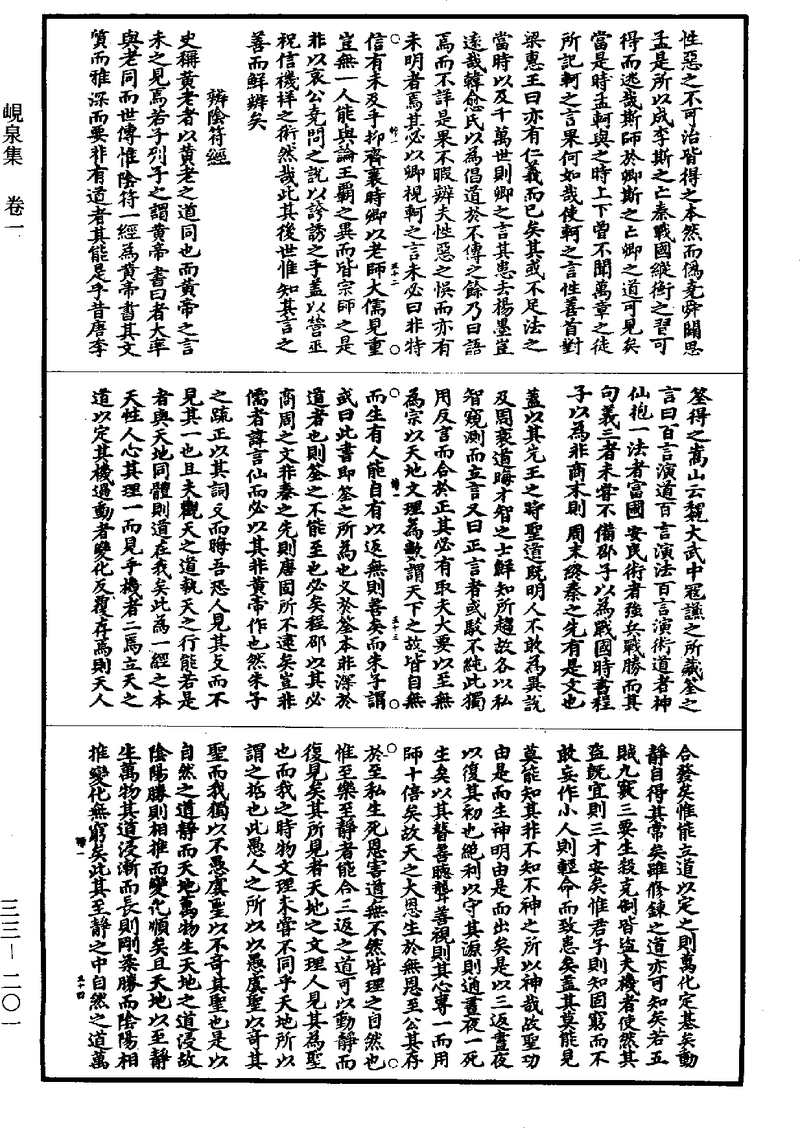 峴泉集　卷一
三三—二〇一
性惡之不可治皆得之本然而偽堯舜闢思
孟是所以成李斯之亡秦戰國縱衡之習可
得而逃哉斯師於卿斯之亡卿之道可見矣
當是時孟軻與之時上下曾不聞萬章之徒
所記軻之言果何如哉使軻之言性善首對
梁惠王曰亦有仁義而已矣其或不足法之
當時以及千萬世則卿之言其患去楊墨豈
遠哉韓愈氏以為倡道於不傳之餘乃曰語
焉而不詳是果不暇辨夫性惡之悞而亦有
未明者焉其必以卿視軻之言未必曰非特
信有未及乎抑齊襄時卿以老師大儒見重
豈無一人能與論王霸之異而皆宗師之是
非以哀公堯問之說以誇誘之乎蓋以營巫
祝信機祥之術然哉此其後世惟知其言之
善而鮮辨矣
辨陰符經
史稱黃老者以黃老之道同也而黃帝之言
未之見焉若子列子之謂黃帝書曰者大率
與老同而世傳惟陰符一經為黃帝書其文
質而雅深而要非有道者其能是乎昔唐李
筌得之嵩山云魏大武中冠謙之所藏筌之
言曰百言演道百言演法百言演術道者神
仙抱一法者富國安民術者強兵戰勝而其
句義三者未嘗不備邵子以為戰國時書程
子以為非商末則周末終秦之先有是文也
蓋以其先王之時聖道既明人不敢為異說
及周衰道晦才智之士鮮知所趨故各以私
智窺測而立言又曰正言者或駁不純此獨
用反言而合於正其必有取夫大要以至無
為宗以天地文理為數謂天下之故皆自無
而生有人能自有以返無則善矣而朱子謂
或曰此書即筌之所為也又於筌本非深於
道者也則筌之不能至也必矣程邵以其必
商周之文非秦之先則唐固所不逮矣豈非
儒者諱言仙而必以其非黃帝作也然朱子
之疏正以其詞支而晦吾恐人見其支而不
見其一也且夫觀天之道執天之行能若是
者與天地同體則道在我矣此為一經之本
天性人心其理一而見乎機者二焉立天之
道以定其機過動者變化反覆存焉則天人
合發矣惟能立道以定之則萬化定基矣動
靜自得其常矣雖修鍊之道亦可知矣若五
賊九竅三要生殺克制皆盜夫機者使然其
盜既宜則三才安矣惟君子則知固窮而不
敢妄作小人則輕命而致患矣蓋其莫能見
莫能知其非不知不神之所以神哉故聖功
由是而生神明由是而出矣是以三返晝夜
以復其初也絕利以守其源則通晝夜一死
生矣以其瞽善聽聾善視則其心專一而用
師十倍矣故天之大恩生於無恩至公其存
於至私生死恩害道無不然皆理之自然也
惟至樂至靜者能合三返之道可以動靜而
復見矣其所見者天地之文理人見其為聖
也而我之時物文理未嘗不同乎天地所以
謂之哲也此愚人之所以以愚虞聖以奇其
聖而我獨以不愚虞聖以不奇其聖也是以
自然之道靜而天地萬物生天地之道浸故
陰陽勝則相推而變化順矣且天地以至靜
生萬物其道浸漸而長則剛柔勝而陰陽相
推變化無窮矣此其至靜之中自然之道萬